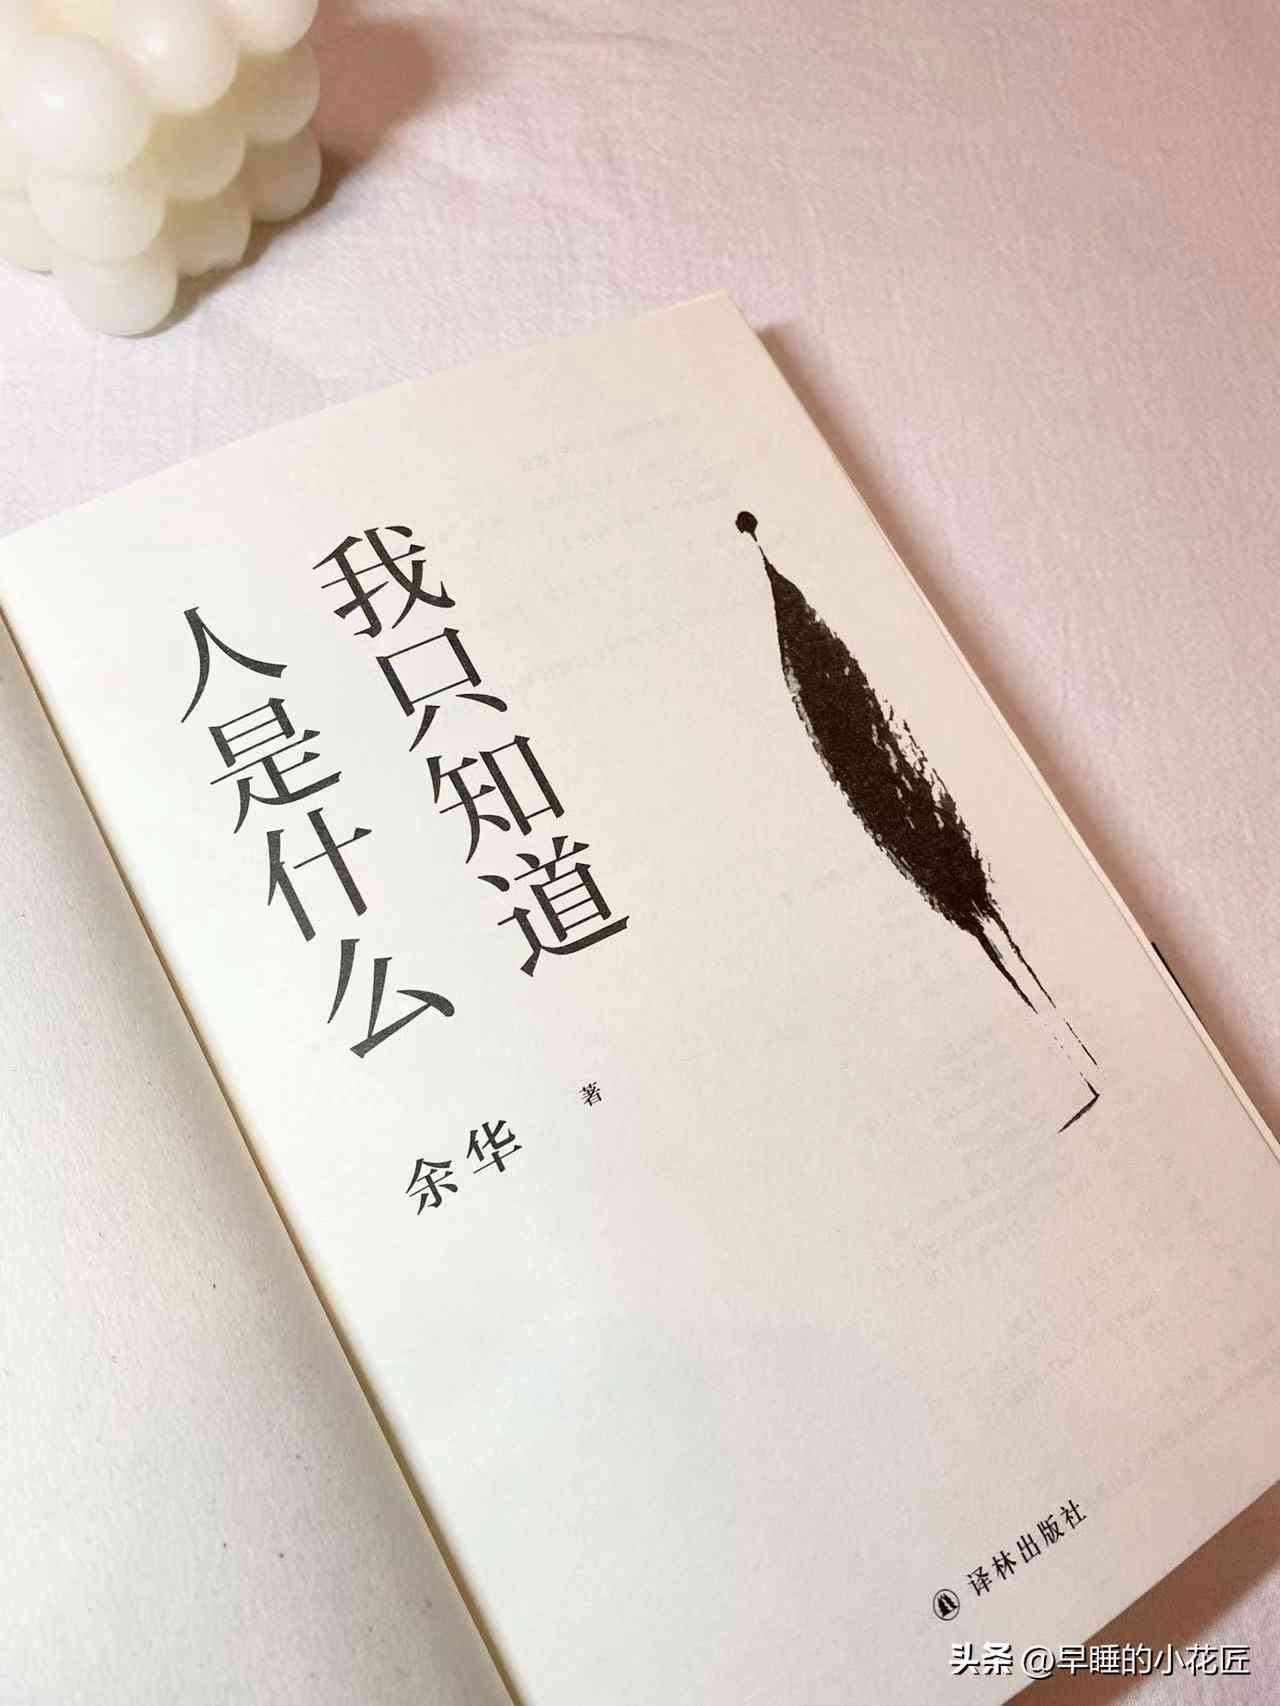 我只知道
人是什么
余华 著
译林出版社
头条 @早睡的小花匠